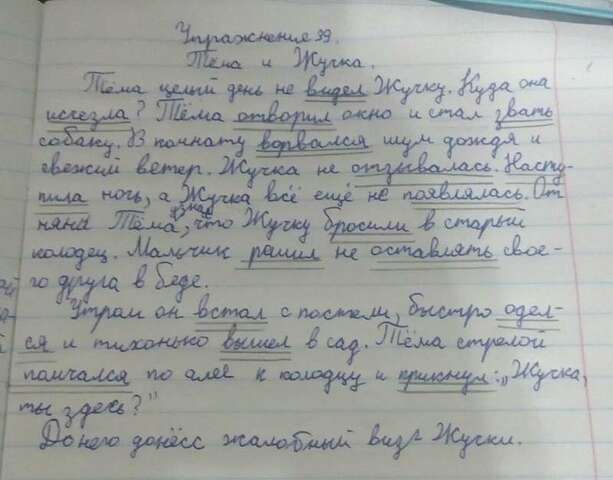 Упражнение 39.
Тёма и Жучка.
Тёма целый день не видел Жучку. Куда она
исчезла? Тёма отворил окно и стал звать
собаку. В комнату ворвался шум дождя и
свежий ветер. Жучка не отзывалась. Насту-
пила ночь, а Жучка всё ещё не появлялась. От
няни Тёма узнал, что Жучку бросили в старый
колодец. Мальчик решил не оставлять свое-
го друга в беде.
Утром он встал с постели, быстро одел-
ся и тихонько вышел в сад. Тёма стрелой
помчался по алее к колодцу и крикнул: „Жучка,
ты здесь?"
До него донёсс жалобный визг Жучки.